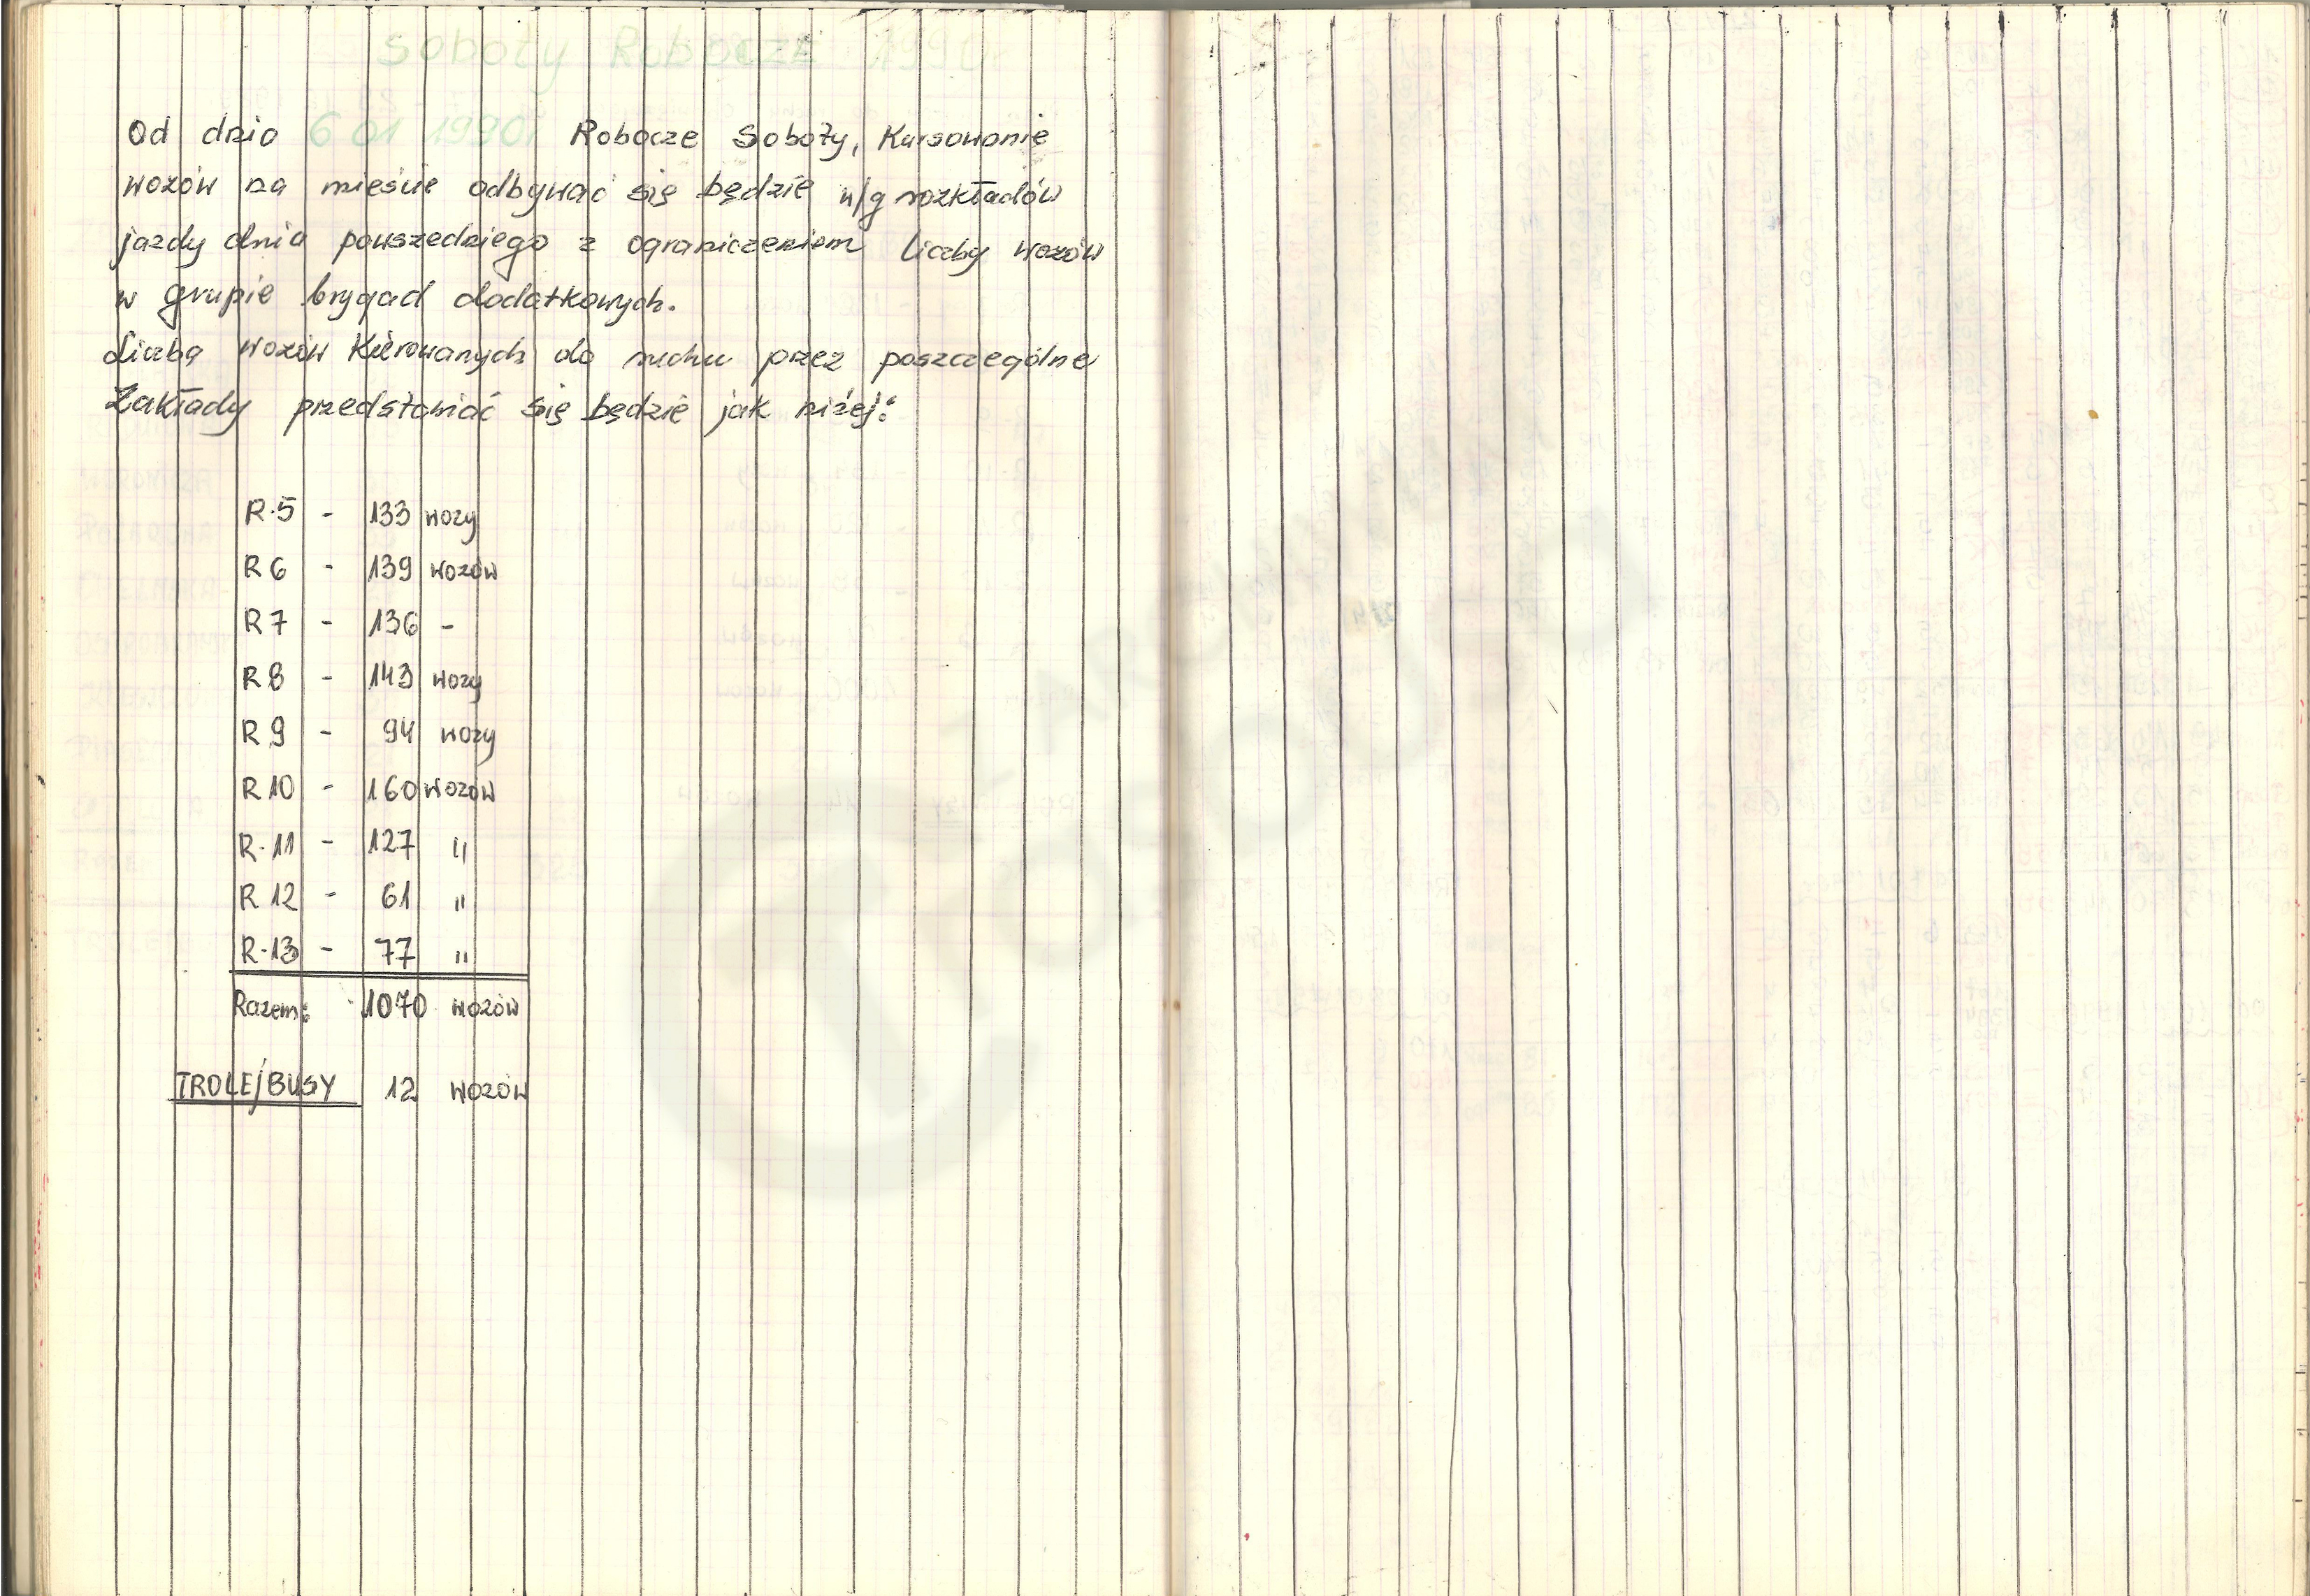 Soboty Robocze 1990r
Od dnia 6 01 1990r Robocze Soboty, Kursowanie
wozów na mieście odbywać się będzie w/g rozkładów
jazdy dnia powszedniego z ograniczeniem liczby wozów
w grupie brygad dodatkowych.
Liczba wozów Kierowanych do ruchu przez poszczególne
Zakłady przedstawiać się będzie jak niżej:
R-5 - 133 wozy
R6 - 139 wozów
R7 - 136 -
R8 - 143 wozy
R9 - 94 wozy
R10 - 160 wozów
R-11 - 127 "
R12 - 61 "
R-13 - 77 "
Razem: 1070 wozów
TROLEJBUSY 12 wozów